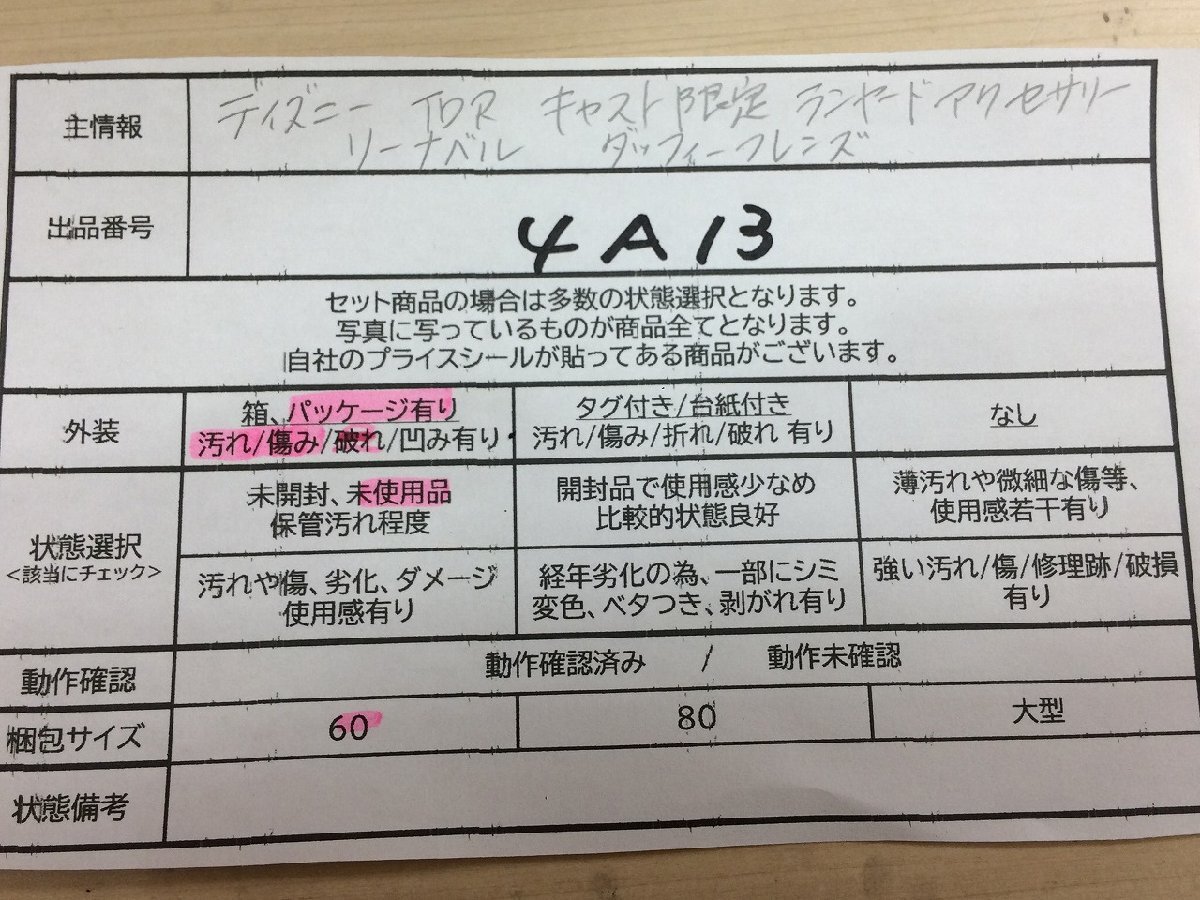 主情報
ディズニー TDR キャスト限定 ランヤードアクセサリー
リーナベル ダッフィーフレンズ
出品番号
4A13
セット商品の場合は多数の状態選択となります。
写真に写っているものが商品全てとなります。
自社のプライスシールが貼ってある商品がございます。
外装
箱、パッケージ有り
汚れ/傷み/破れ/凹み有り
タグ付き/台紙付き
汚れ/傷み/折れ/破れ 有り
なし
状態選択
<該当にチェック>
未開封、未使用品
保管汚れ程度
開封品で使用感少なめ
比較的状態良好
薄汚れや微細な傷等、
使用感若干有り
汚れや傷、劣化、ダメージ
使用感有り
経年劣化の為、一部にシミ
変色、ベタつき、剥がれ有り
強い汚れ/傷/修理跡/破損
有り
動作確認
動作確認済み / 動作未確認
梱包サイズ
60
80
大型
状態備考